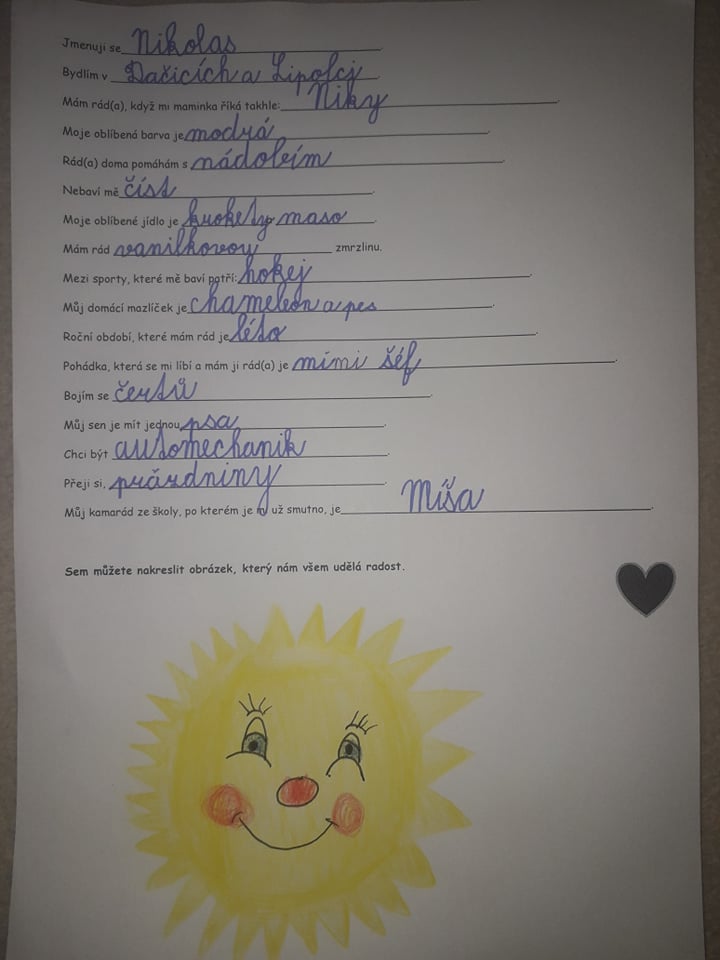 Jmenuji se Nikolas
Bydlím v Dačicích a Lipolcj
Mám rád(a), když mi maminka říká takhle: Niky
Moje oblíbená barva je modrá
Rád(a) doma pomáhám s nádobím
Nebaví mě číst
Moje oblíbené jídlo je krokety maso
Mám rád vanilkovoy zmrzlinu.
Mezi sporty, které mě baví patří: hokej
Můj domácí mazlíček je chameleon a pes
Roční období, které mám rád je léto
Pohádka, která se mi líbí a mám ji rád(a) je mimi šéf
Bojím se čertů
Můj sen je mít jednou psa
Chci být automechanik
Přeji si, prázdniny
Můj kamarád ze školy, po kterém je mi už smutno, je Míša
Sem můžete nakreslit obrázek, který nám všem udělá radost.